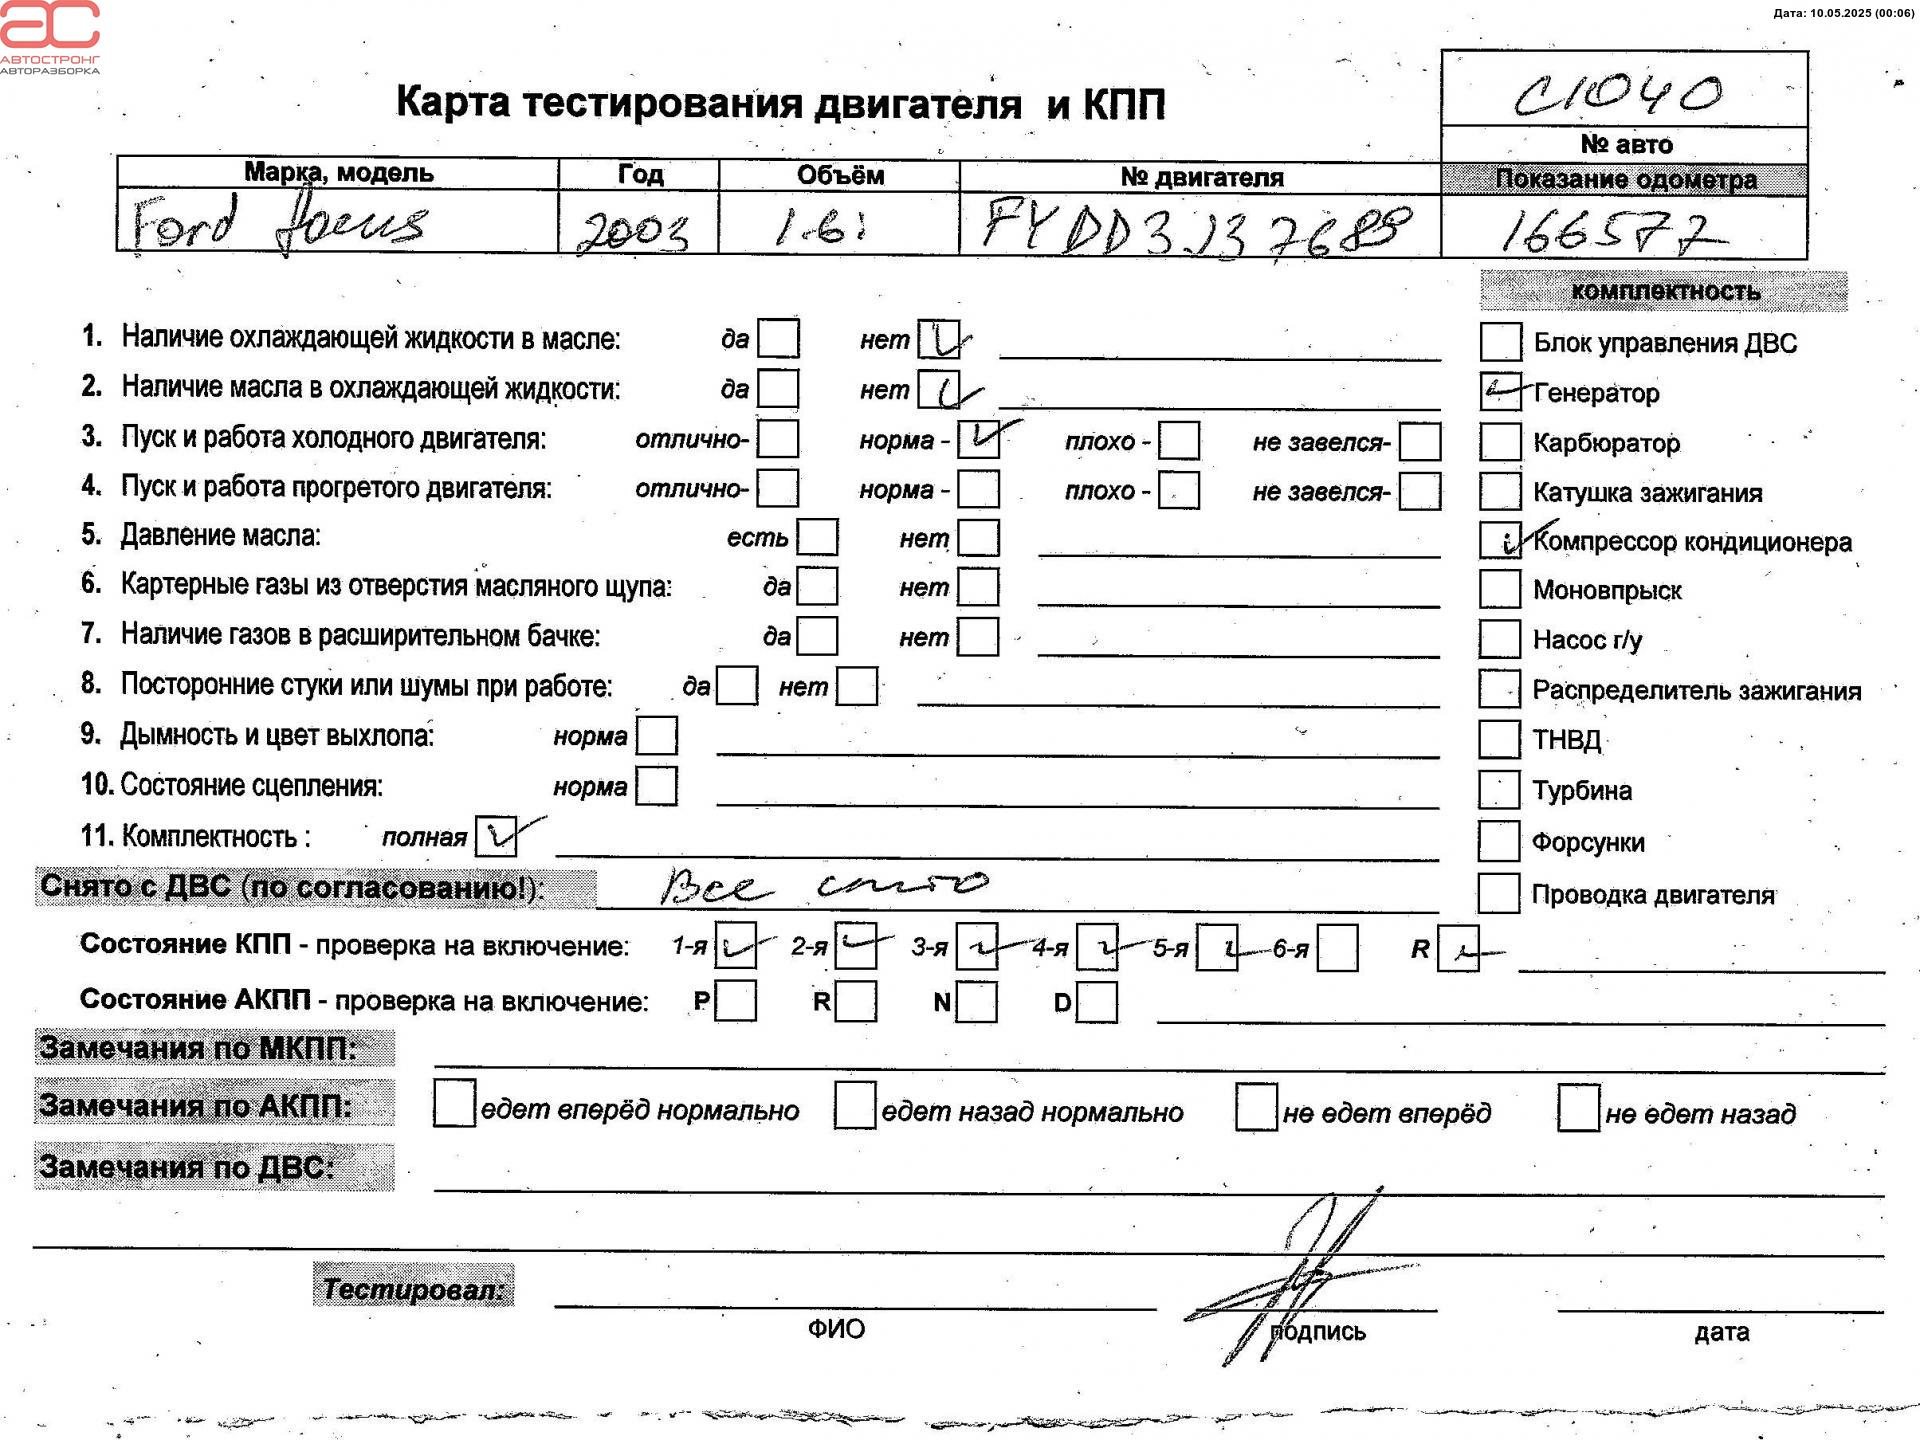 Дата: 10.05.2025 (00:06)
АВТОСТРОНГ
АВТОРАЗБОРКА
Карта тестирования двигателя и КПП
C1040
№ авто
Марка, модель Год Объём № двигателя Показание одометра
Ford Focus 2003 1.6i FYDD3J37689 166577
комплектность
1. Наличие охлаждающей жидкости в масле: да нет
Блок управления ДВС
2. Наличие масла в охлаждающей жидкости: да нет
Генератор
3. Пуск и работа холодного двигателя: отлично- норма - плохо - не завелся-
Карбюратор
4. Пуск и работа прогретого двигателя: отлично- норма - плохо - не завелся-
Катушка зажигания
5. Давление масла: есть нет
Компрессор кондиционера
6. Картерные газы из отверстия масляного щупа: да нет
Моновпрыск
7. Наличие газов в расширительном бачке: да нет
Насос г/у
8. Посторонние стуки или шумы при работе: да нет
Распределитель зажигания
9. Дымность и цвет выхлопа: норма
ТНВД
10. Состояние сцепления: норма
Турбина
11. Комплектность : полная
Форсунки
Снято с ДВС (по согласованию!): Все
Проводка двигателя
Состояние КПП - проверка на включение: 1-я 2-я 3-я 4-я 5-я 6-я R
Состояние АКПП - проверка на включение: P R N D
Замечания по МКПП:
Замечания по АКПП: едет вперёд нормально едет назад нормально не едет вперёд не едет назад
Замечания по ДВС:
Тестировал:
ФИО подпись дата